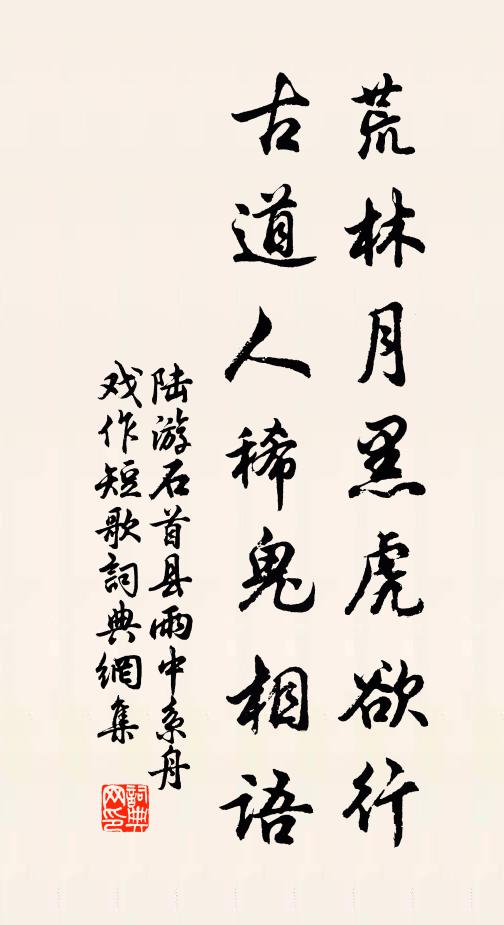 荒林月黑虎欲行
古道人稀鬼相語
陆游石首县雨中系舟
戏作短歌詞典網集
詞典
网印